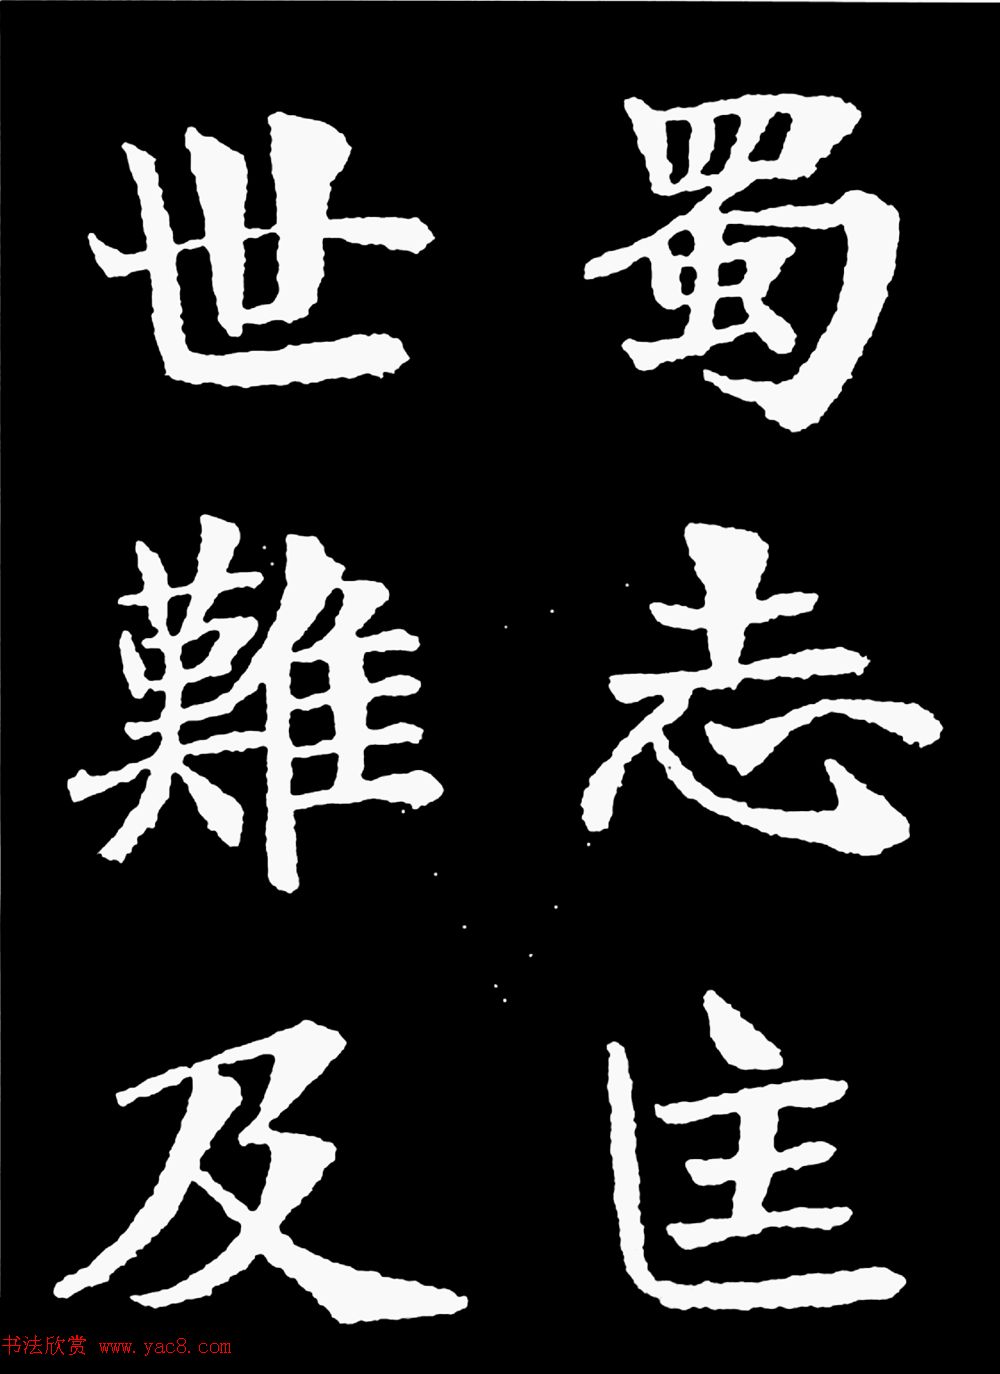 蜀志匡
世難及
书法欣赏 www.yac8.com